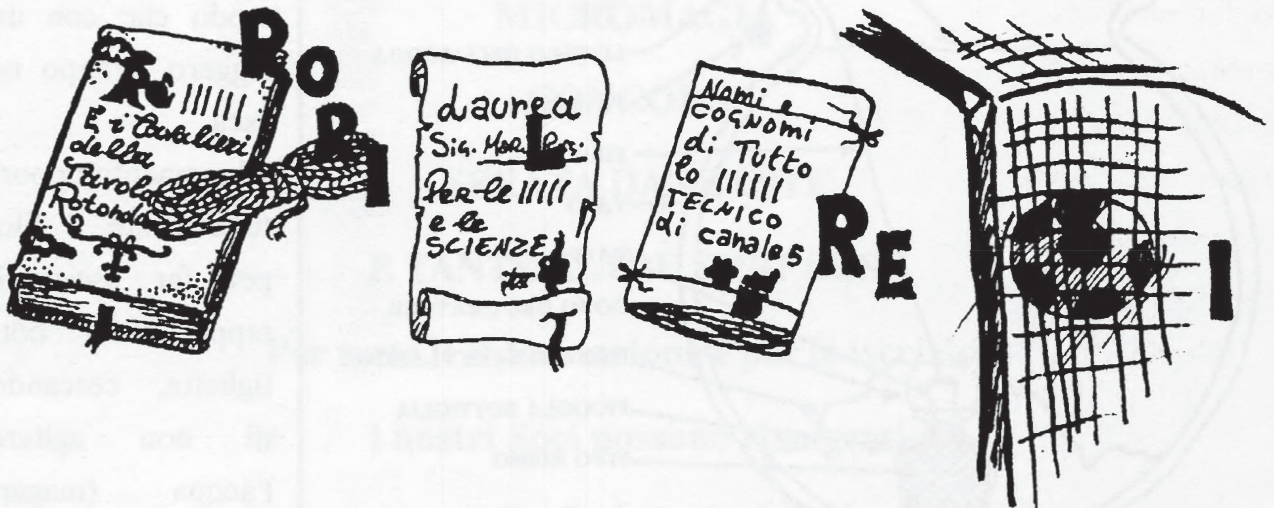 Re ||||||
E i Cavalieri
della
Tavola
Rotonda
P
O
P
I
Laurea
Sig.
Per-le |||||
e le
SCIENZE
L
T
Nomi e
COGNOMI
di Tutto
lo ||||||
TECNICO
di canale 5
RE
I